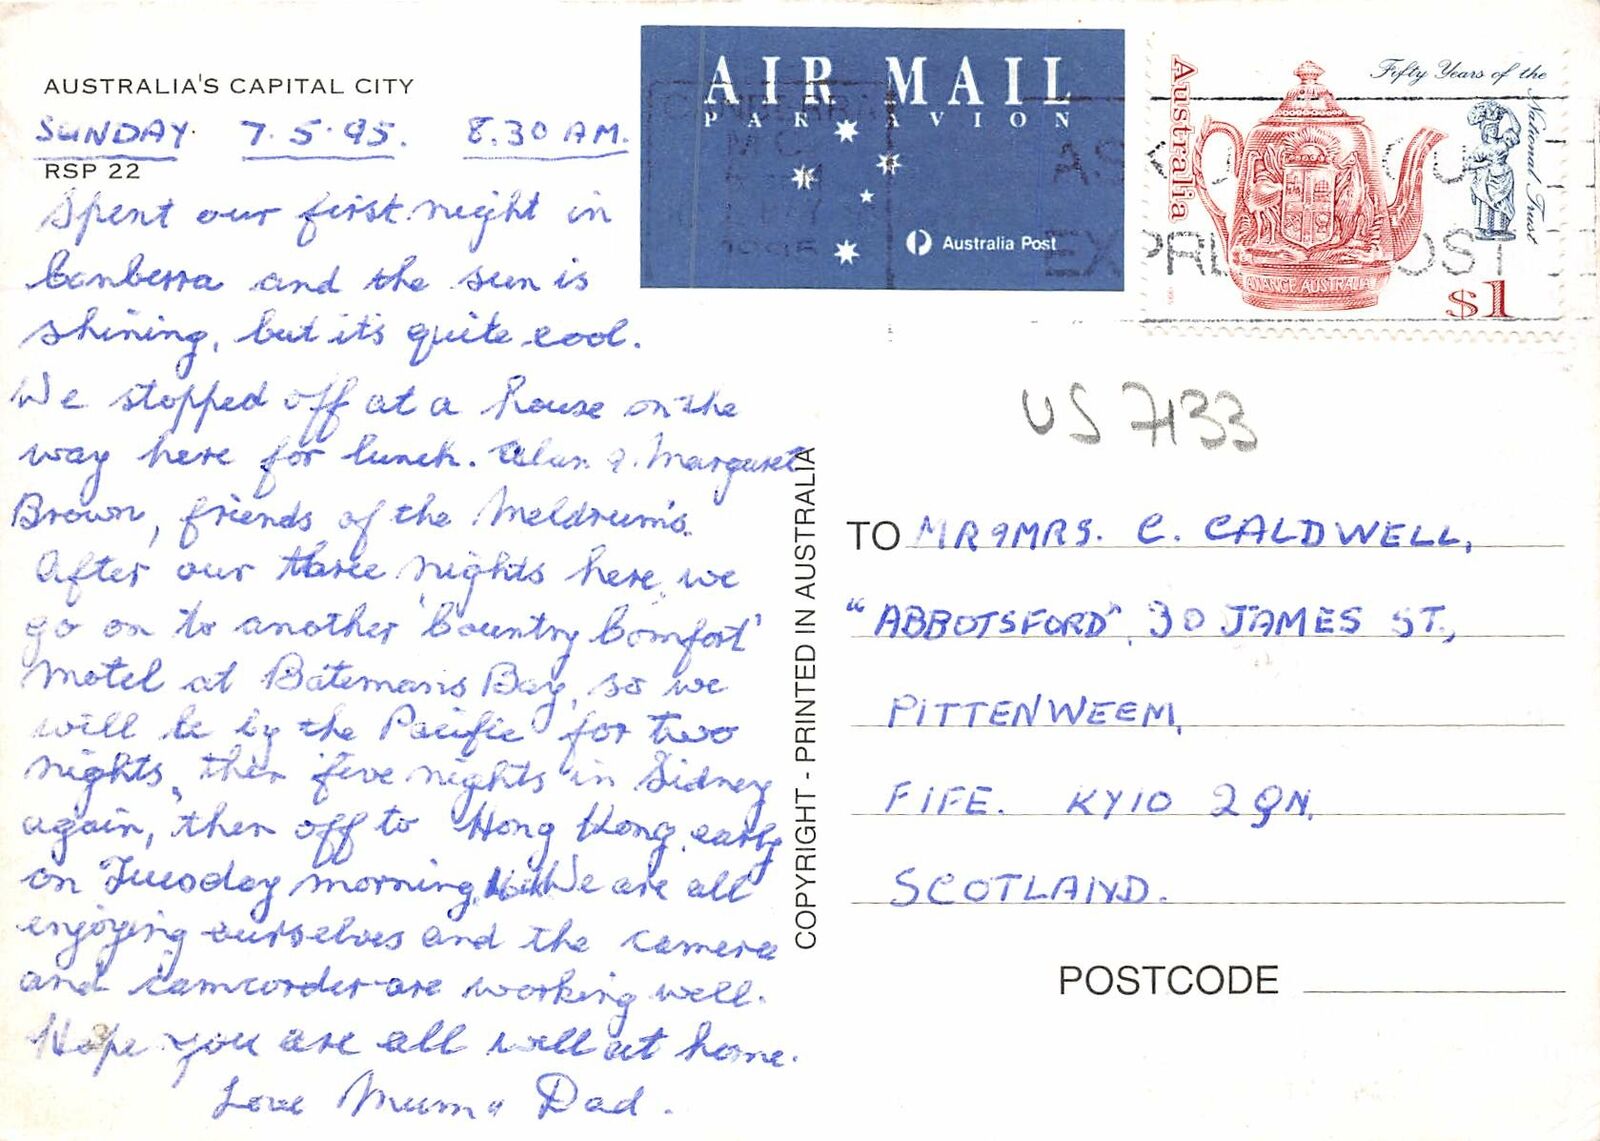 AUSTRALIA'S CAPITAL CITY
SUNDAY 7.5.95. 8.30 AM.
RSP 22
Spent our first night in
Canberra and the sun is
shining, but it's quite cool.
We stopped off at a house on the
way here for lunch. Alan & Margaret
Brown, friends of the Meldrum's.
After our three nights here, we
go on to another 'Country Comfort'
Motel at Batemans Bay, so we
will be by the Pacific for two
nights, then five nights in Sidney
again, then off to Hong Kong, early
on Tuesday morning. We are all
enjoying ourselves and the camera
and camcorder are working well.
Hope you are all well at home.
Love Mum & Dad.
COPYRIGHT - PRINTED IN AUSTRALIA
AIR MAIL
PAR AVION
Australia Post
Australia
Fifty Years of the National Trust
ADVANCE AUSTRALIA
$1
CANBERRA
M.C.
1995
EXPRESS POST
US 7133
TO MR & MRS. C. CALDWELL,
"ABBOTSFORD", 30 JAMES ST.,
PITTENWEEM,
FIFE. KY10 2QN,
SCOTLAND.
POSTCODE